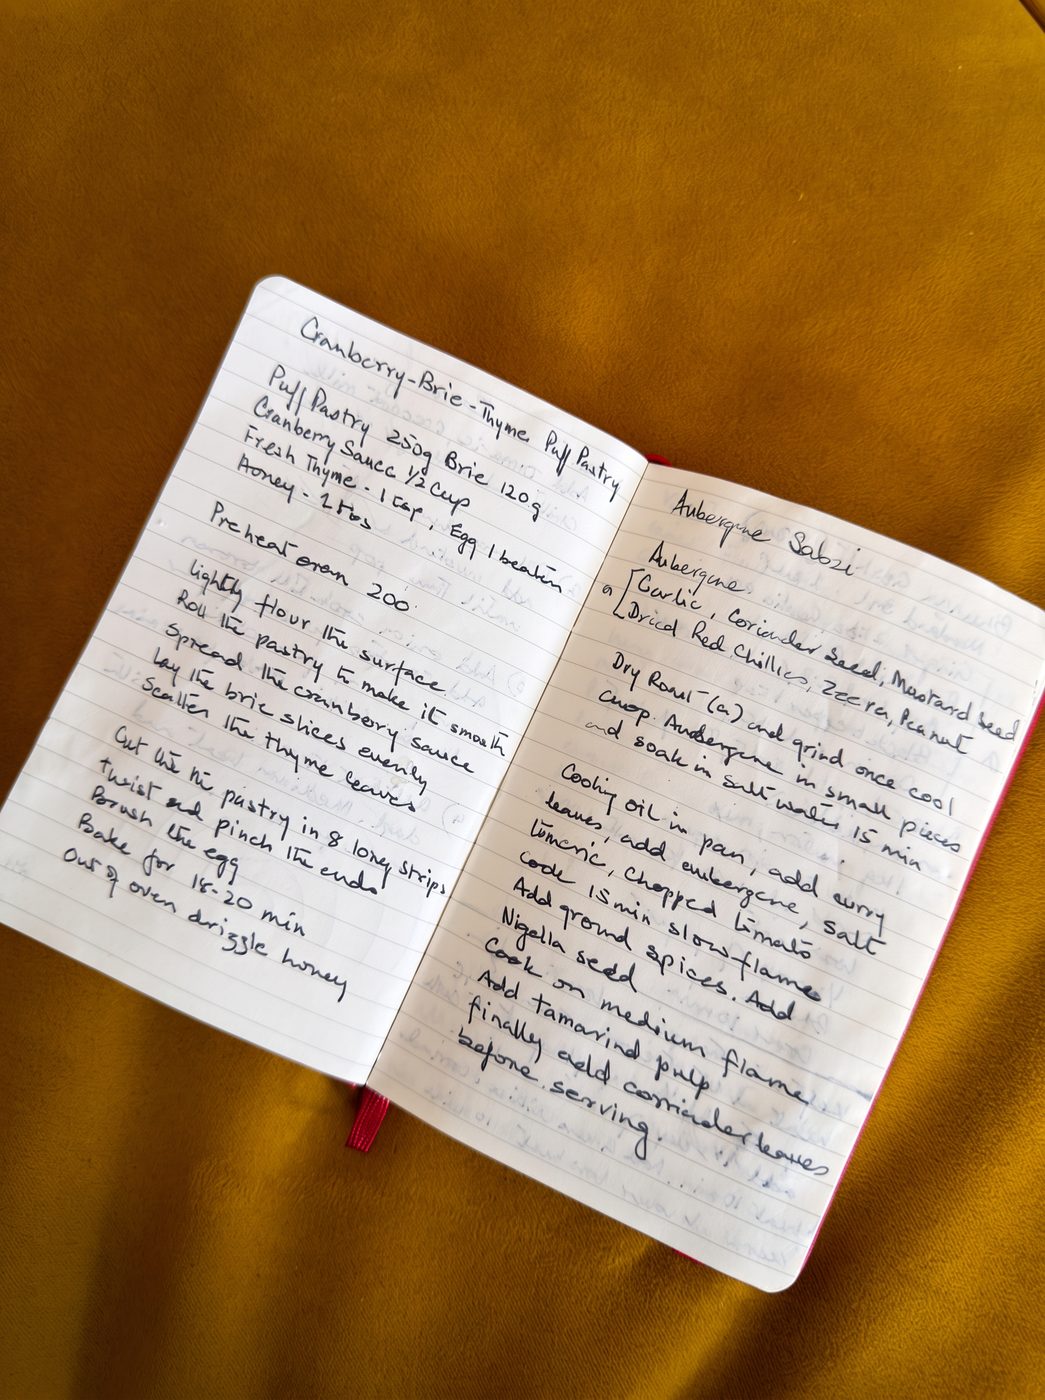 Cranberry-Brie-Thyme Puff Pastry
Puff Pastry 250g Brie 120g
Cranberry Sauce 1/2 cup
Fresh Thyme - 1 tsp, Egg 1 beaten
Honey - 2 tbs
Preheat oven 200.
lightly flour the surface
Roll the pastry to make it smooth
Spread the cranberry sauce
lay the brie slices evenly
Scatter the thyme leaves
Cut the pastry in 8 long strips
twist and Pinch the ends
Brush the egg
Bake for 18-20 min
Out of oven drizzle honey
Aubergine Sabzi
Aubergine
a [ Garlic, Coriander Seed, Mustard seed
Dried Red Chillies, Zeera, Peanut
Dry Roast (a) and grind once cool
Chop Aubergine in small pieces
and soak in salt water 15 min
Cooking oil in pan, add curry
leaves, add aubergine, salt
tumeric, chopped tomato
Cook 15 min slow flame
Add ground spices. Add
Nigella seed
Cook on medium flame
Add tamarind pulp
finally add corriander leaves
before serving.